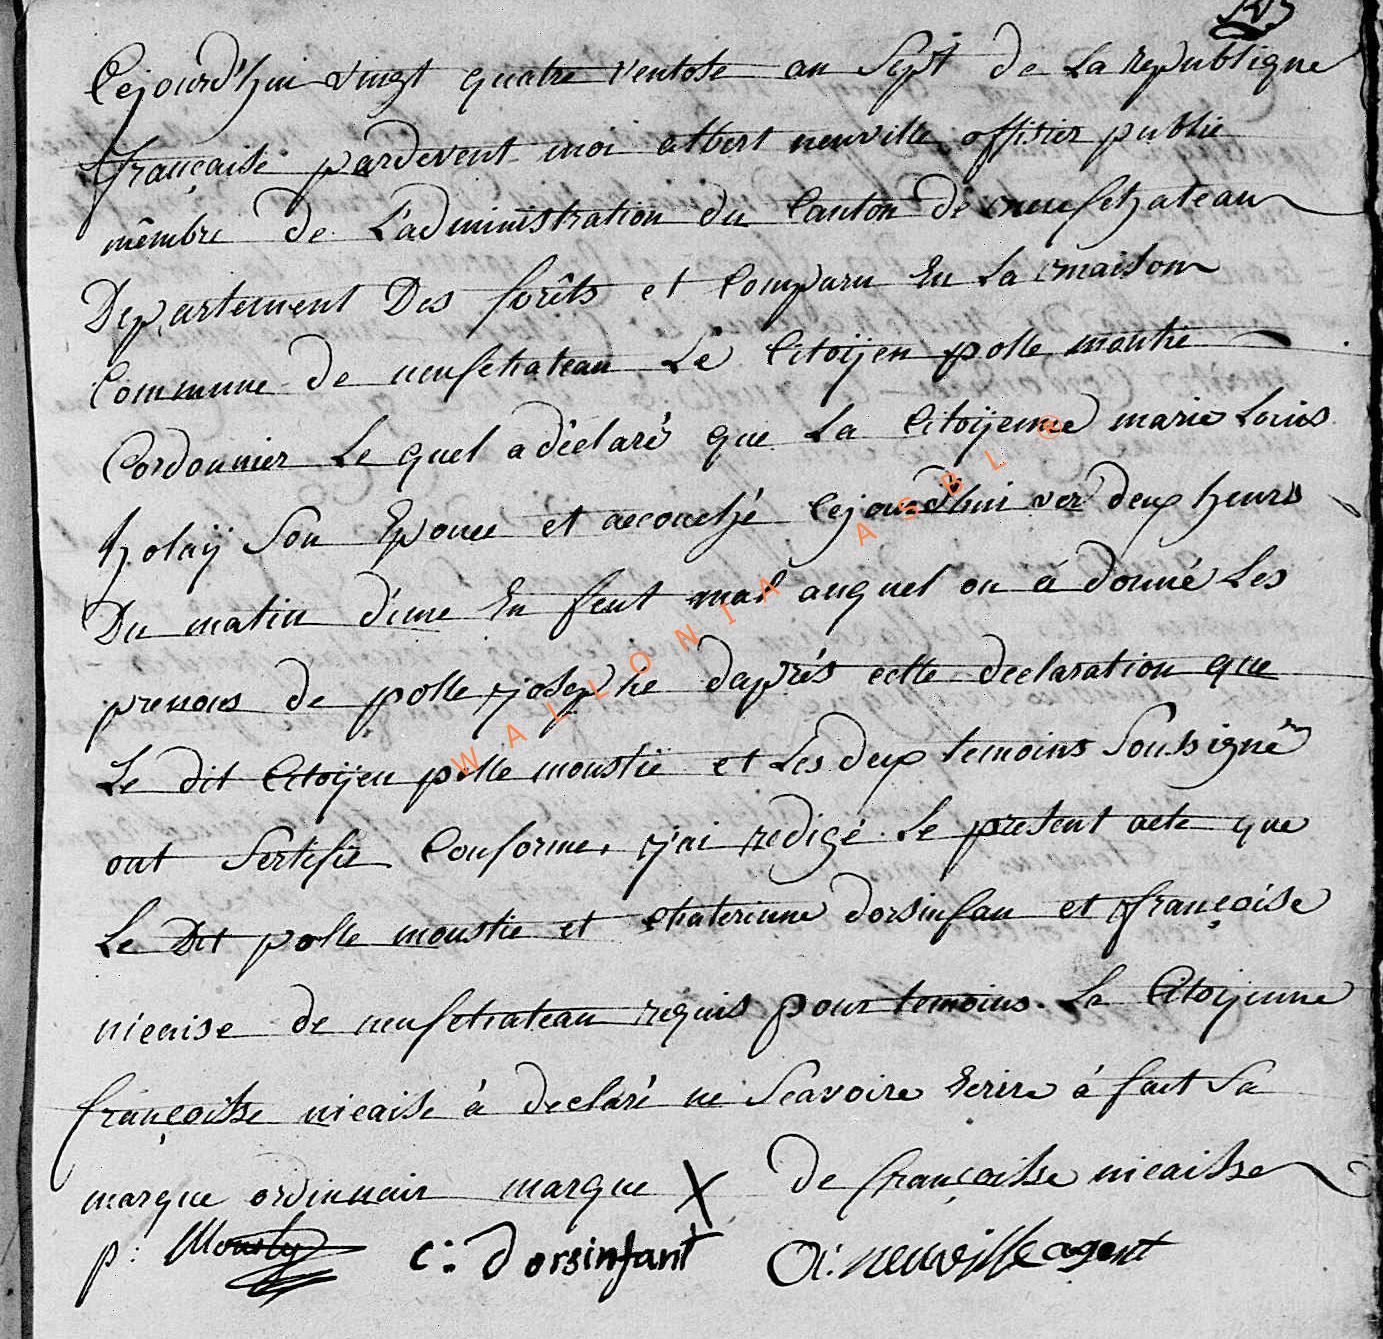 Cejourd'hui vingt quatre ventose an Sept de La republique
française pardevent moi albert neuville offisier public
mêmbre de L'administration du Canton de neufchateau
Departement Des forêts et Comparu En La maison
Commune de neufchateau Le Citoÿen polle moustie
Cordonnier Le quel a déclaré que La Citoÿenne marie Louis
holaÿ Son Epouse et accouché Cejourd'hui ver deux heures
Du matin d'une En fent mal auquel on à donné Les
prenoms de polle josephe daprés cette declaration que
Le dit Citoÿen polle moustie et Les deux temoins Soussigné
ont Sertifié Conforme, j'ai redigé Le present acte que
Le Dit polle moustie et chaterinne dorsinfan et françoise
nicaise de neufchateau requis pour temoins. La Citoÿenne
françoisse nicaise à declaré ne Scavoire Ecrire à fait Sa
marque ordinnair marque X de françoisse nicaisse
p: Mousty C: Dorsinfant A: neuville agent
WALLONIA ASBL ®